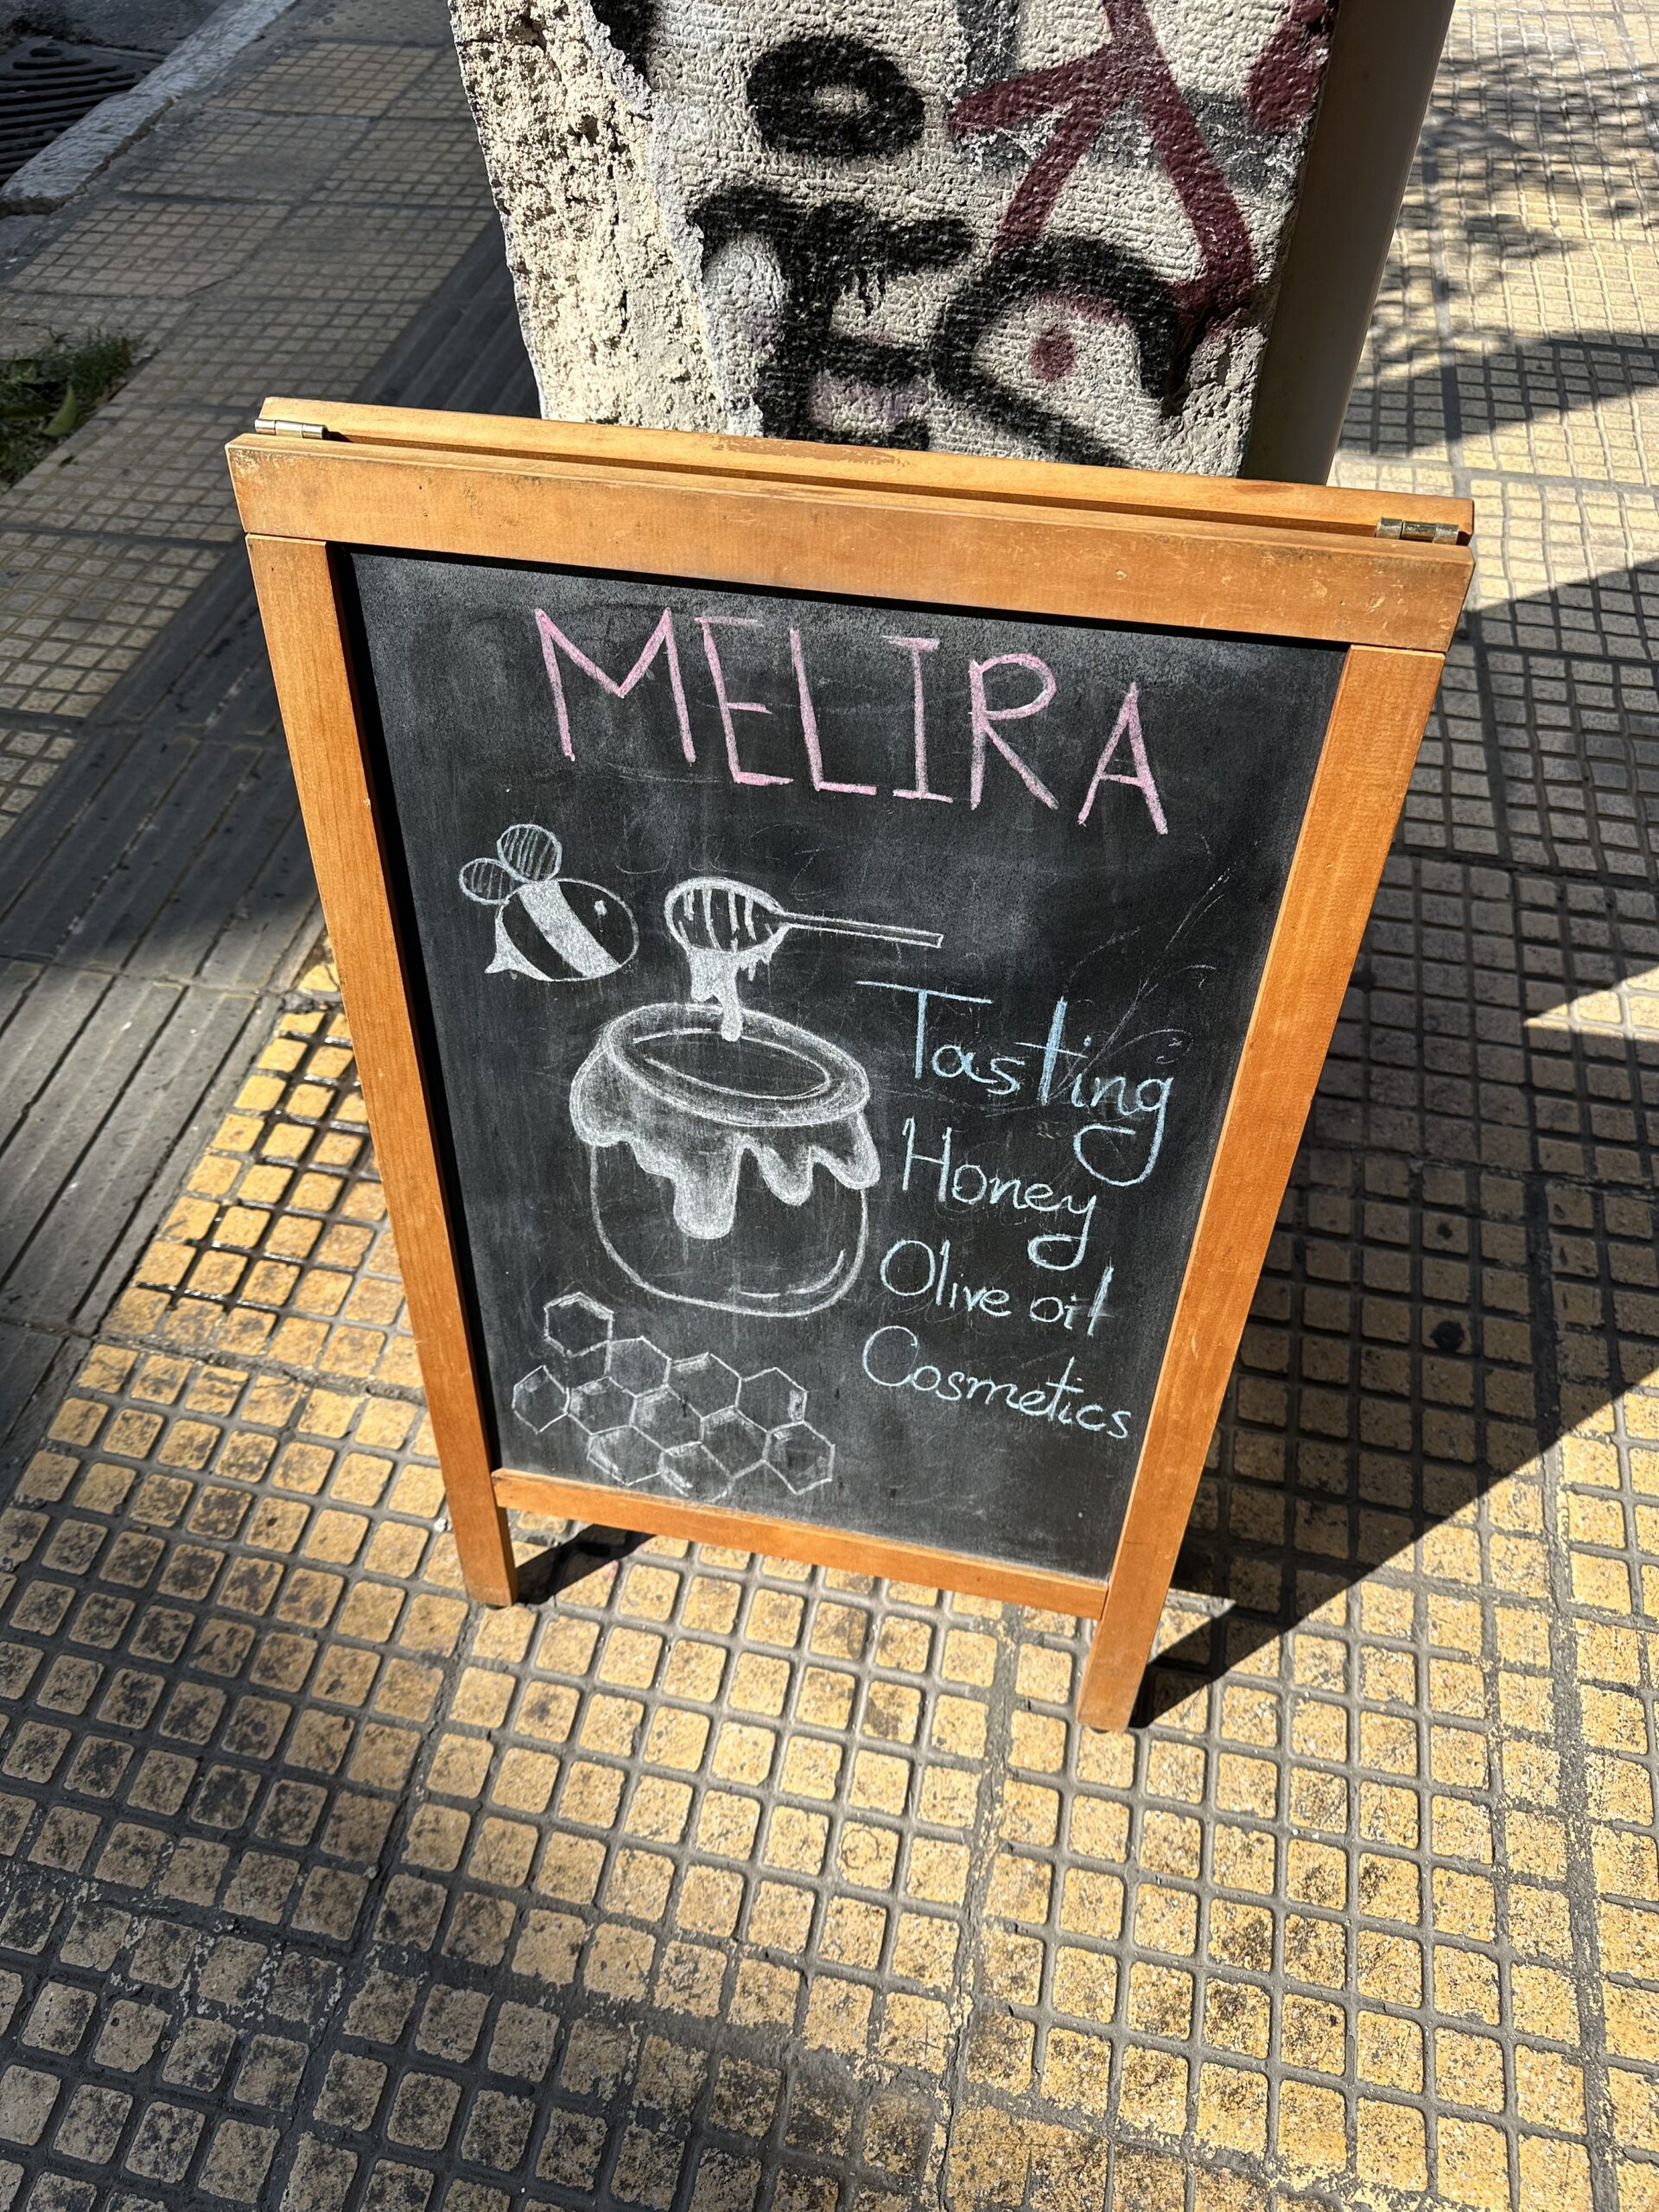 MELIRA
Tasting
Honey
Olive oil
Cosmetics